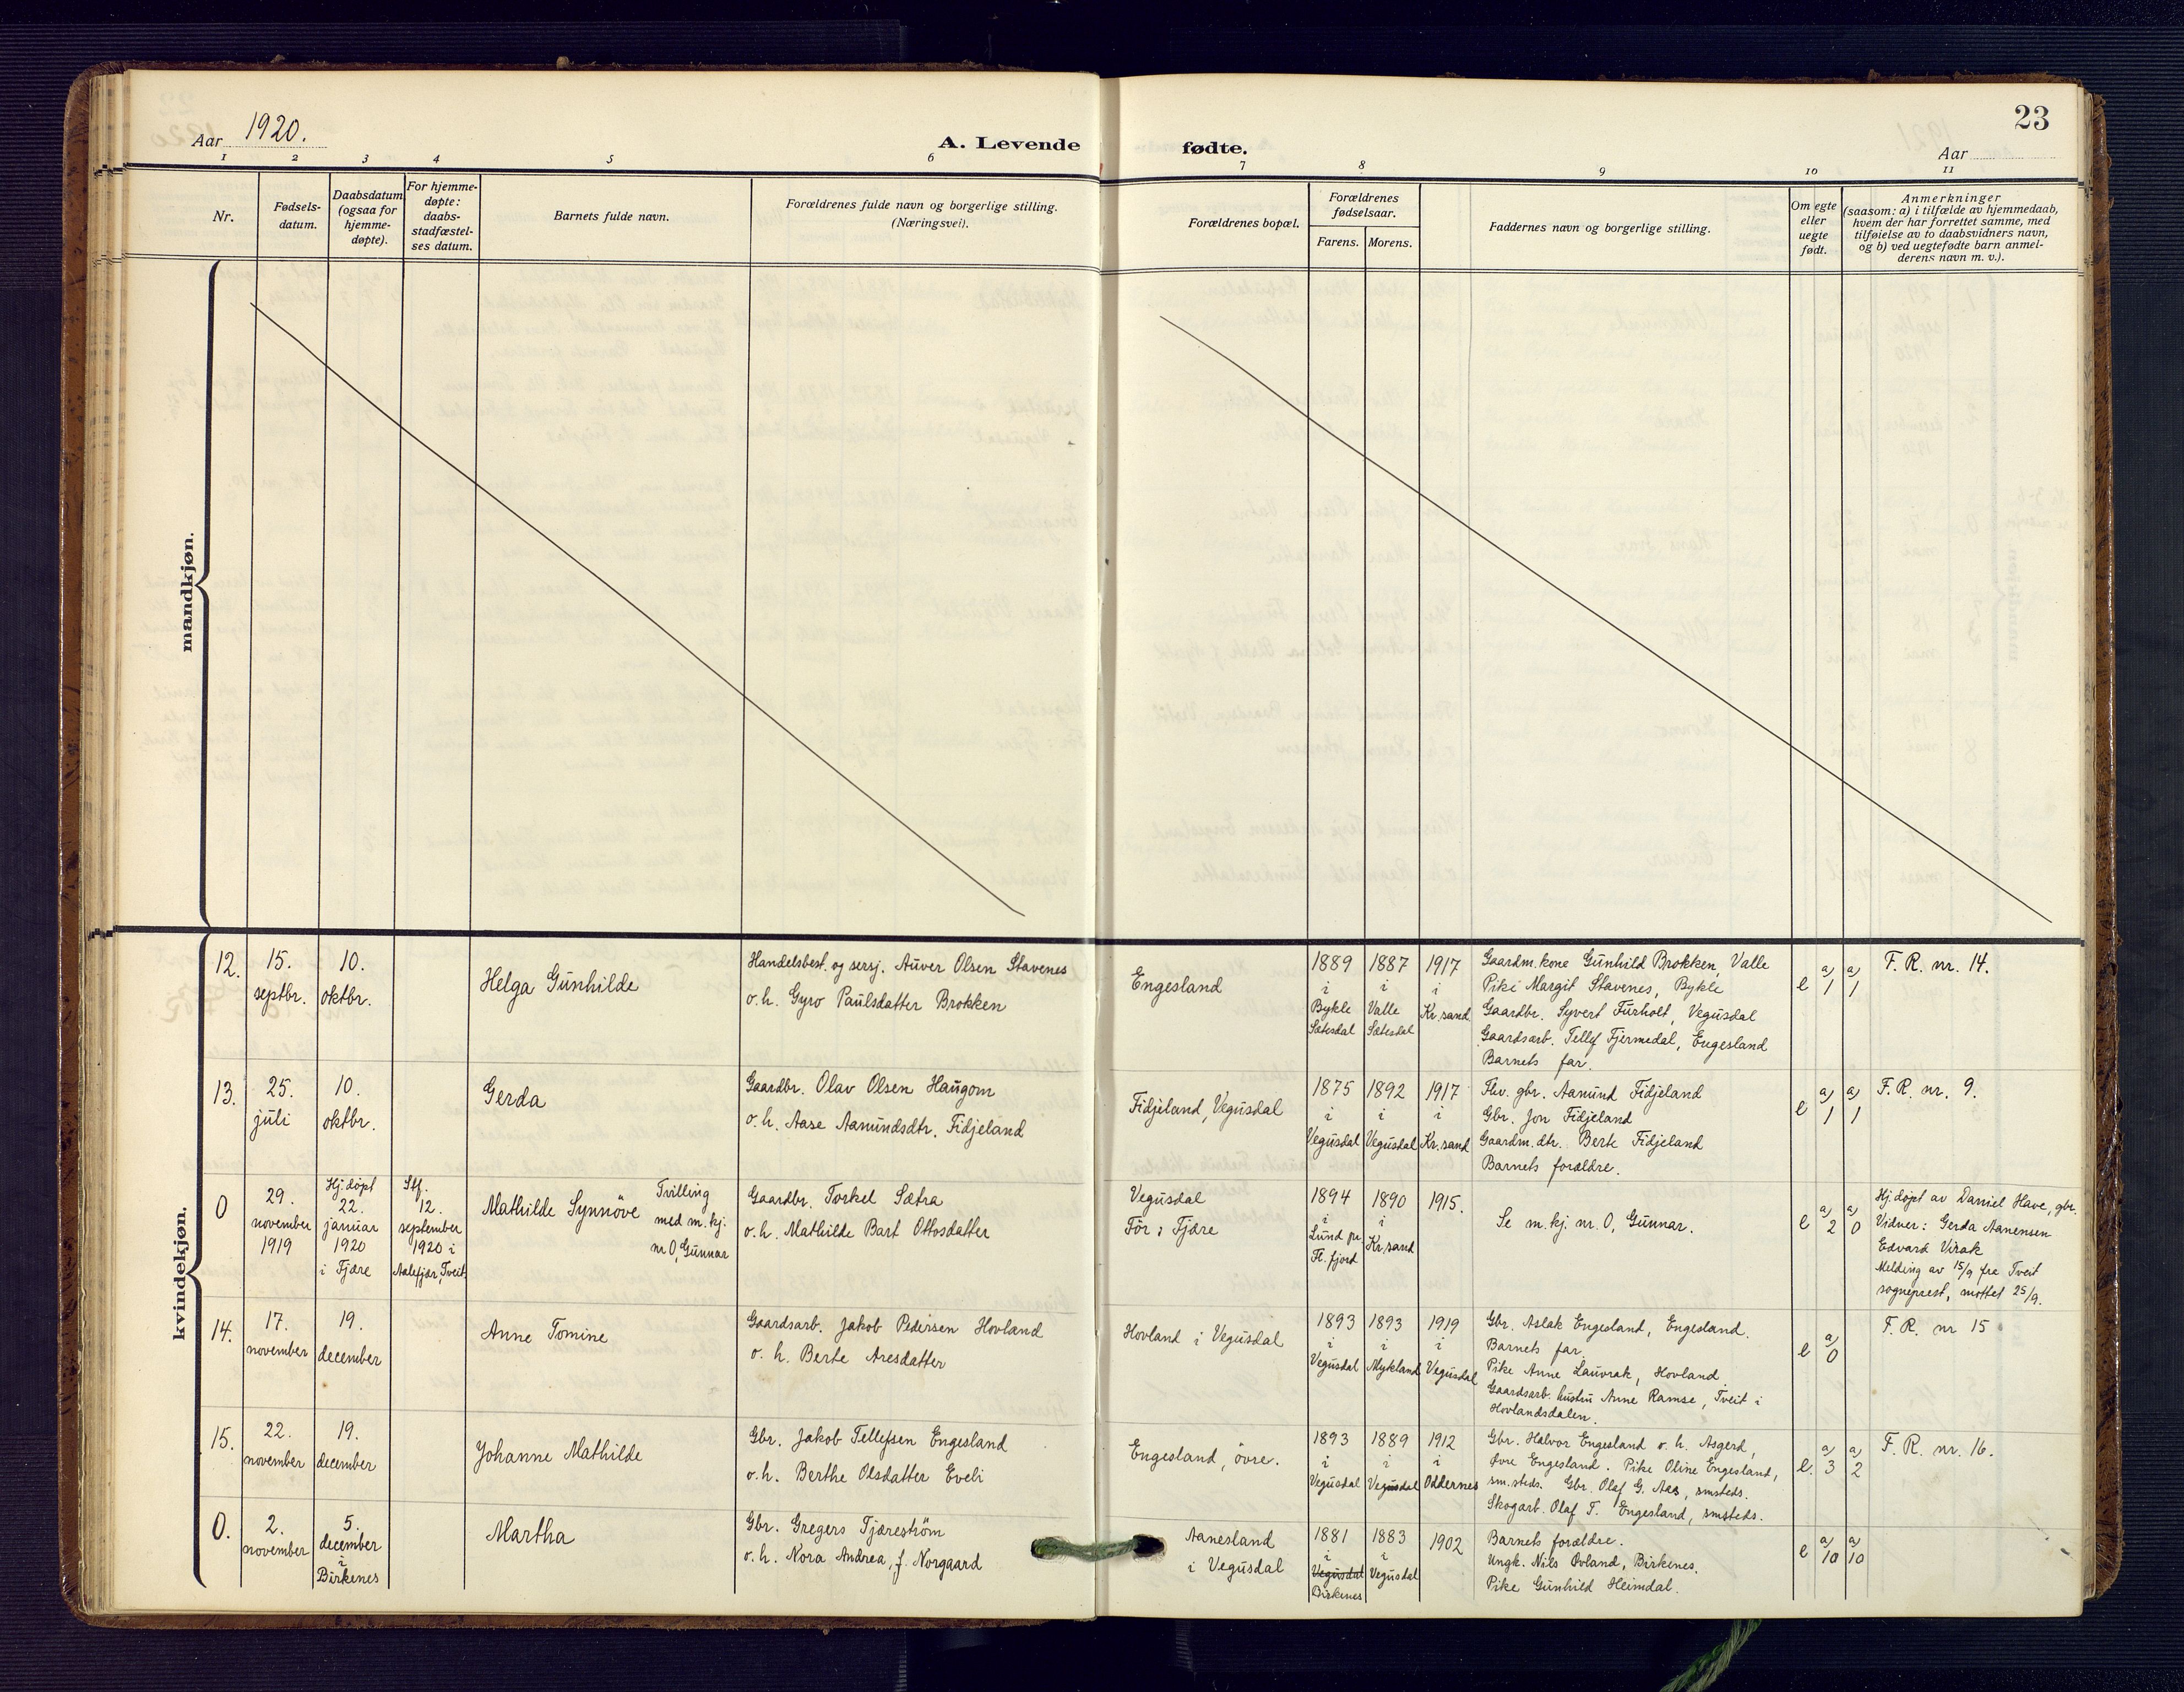 Aar 1920.
A. Levende fødte.
23
Aar
1 2 3 4 5 6 7 8 9 10 11
Nr.
Fødsels-
datum.
Daabsdatum
(ogsaa for
hjemme-
døpte).
For hjemme-
døpte:
daabs-
stadfæstel-
ses datum.
Barnets fulde navn.
Forældrenes fulde navn og borgerlige stilling.
(Næringsvei).
Forældrenes bopæl.
Forældrenes
fødselsaar.
Farens. Morens.
Faddernes navn og borgerlige stilling.
Om egte
eller
uegte
født.
Anmerkninger
(saasom: a) i tilfælde av hjemmedaab,
hvem der har forrettet samme, med
tilføielse av to daabsvidners navn,
og b) ved uegtefødte barn anmel-
derens navn m. v.).
mandkjøn.
kvindekjøn.
12.
15.
septbr.
10.
oktbr.
Helga Gunhilde
Handelsbest. og sersj. Auver Olsen Stavenes
o. h. Gyro Paulsdatter Brokken
Engesland
1889
i
Bykle
Sætesdal
1887
i
Valle
Sætesdal
1917
i
Kr.sand
Gaardm. kone Gunhild Brokken, Valle
Pike Margit Stavenes, Bykle
Gaardbr. Syvert Furholt, Vegusdal
Gaardsarb. Tellef Fjermedal, Engesland
Barnets far.
e
a)
1
a)
1
F. R. nr. 14.
13.
25.
juli
10.
oktbr.
Gerda
Gaardbr. Olav Olsen Haugom
o. h. Aase Aamundsdtr. Fidjeland
Fidjeland, Vegusdal
1875
i
Vegusdal
1892
i
Vegusdal
1917
i
Kr.sand
Fhv. gbr. Aamund Fidjeland
Gbr. Jon Fidjeland
Gaardm. dtr. Berte Fidjeland
Barnets forældre.
e
a)
1
a)
1
F. R. nr. 9.
0
29.
november
1919
Hj.døpt
22.
januar
1920
i Fjære
Stf.
12.
september
1920 i
Aalefjær, Tveit.
Mathilde Synnöve
Tvilling
med m. kj.
nr 0, Gunnar
Gaardbr. Torkel Sætra
o. h. Mathilde Bart Ottosdatter
Vegusdal
Før i Fjære
1894
i
Lund pr.
Fl. fjord
1890
i
Kr.sand
1915.
Se m. kj. nr. 0, Gunnar.
e
a)
2
a)
0
Hj.døpt av Daniel Have, gbr.
Vidner: Gerda Aanensen
Edvard Virak
Melding av 15/9 fra Tveit
sogneprest, mottet 25/9.
14.
17.
november
19.
december
Anne Tomine
Gaardsarb. Jakob Pedersen Hovland
o. h. Berte Aresdatter
Hovland i Vegusdal
1893
i
Vegusdal
1893
i
Mykland
1919
i
Vegusdal
Gbr. Aslak Engesland, Engesland.
Barnets far.
Pike Anne Lauvrak, Hovland.
Gaardsarb. hustru Anne Ramse, Tveit i
Hovlandsdalen.
e
a)
0
F. R. nr 15
15.
22.
november
19.
december
Johanne Mathilde
Gbr. Jakob Tellefsen Engesland
o. h. Berthe Olsdatter Eveli
Engesland, övre.
1893
i
Vegusdal
1889
i
Vegusdal
1912
i
Oddernes
Gbr. Halvor Engesland o. h. Asgerd,
Øvre Engesland. Pike Oline Engesland,
sm.steds. Gbr. Olaf G. Aas, smsteds.
Skogarb. Olaf T. Engesland, smsteds.
e.
a)
3
a)
2
F. R. nr. 16.
0.
2.
november
5.
december
i
Birkenes
Martha
Gbr. Gregers Tjæreström
o. h. Nora Andrea, f. Norgaard
Aanesland
i Vegusdal
1881
i
Vegusdal
Birkenes
1883
i
Vegusdal
1902
Barnets forældre.
Ungk. Nils Øvland, Birkenes.
Pike Gunhild Heimdal.
e
a)
10
a)
10